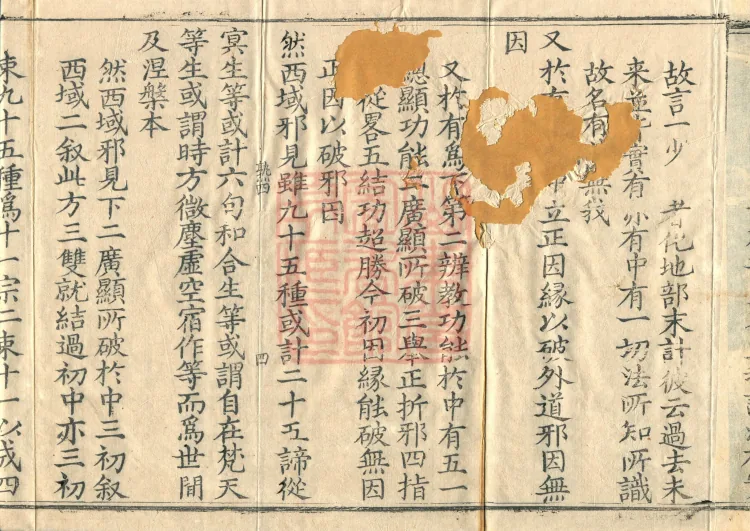 故言一少 者化地部末計彼云過去未
来 實有 亦有中有一切法所知所識
故名有 無我
又於有 立正因緣以破外道邪因無
因
又於有爲下第二辨教功能於中有五一
總顯功能二廣顯所破三舉正折邪四指
從畧五結功超勝今初因緣能破無因
正因以破邪因
然西域邪見雖九十五種或計二十五諦從
四
冥生等或計六句和合生等或謂自在梵天
等生或謂時方微塵虛空宿作等而爲世間
及涅槃本
然西域邪見下二廣顯所破於中三初叙
西域二叙此方三雙就結過初中亦三初
束九十五種爲十一宗二束十一以成四